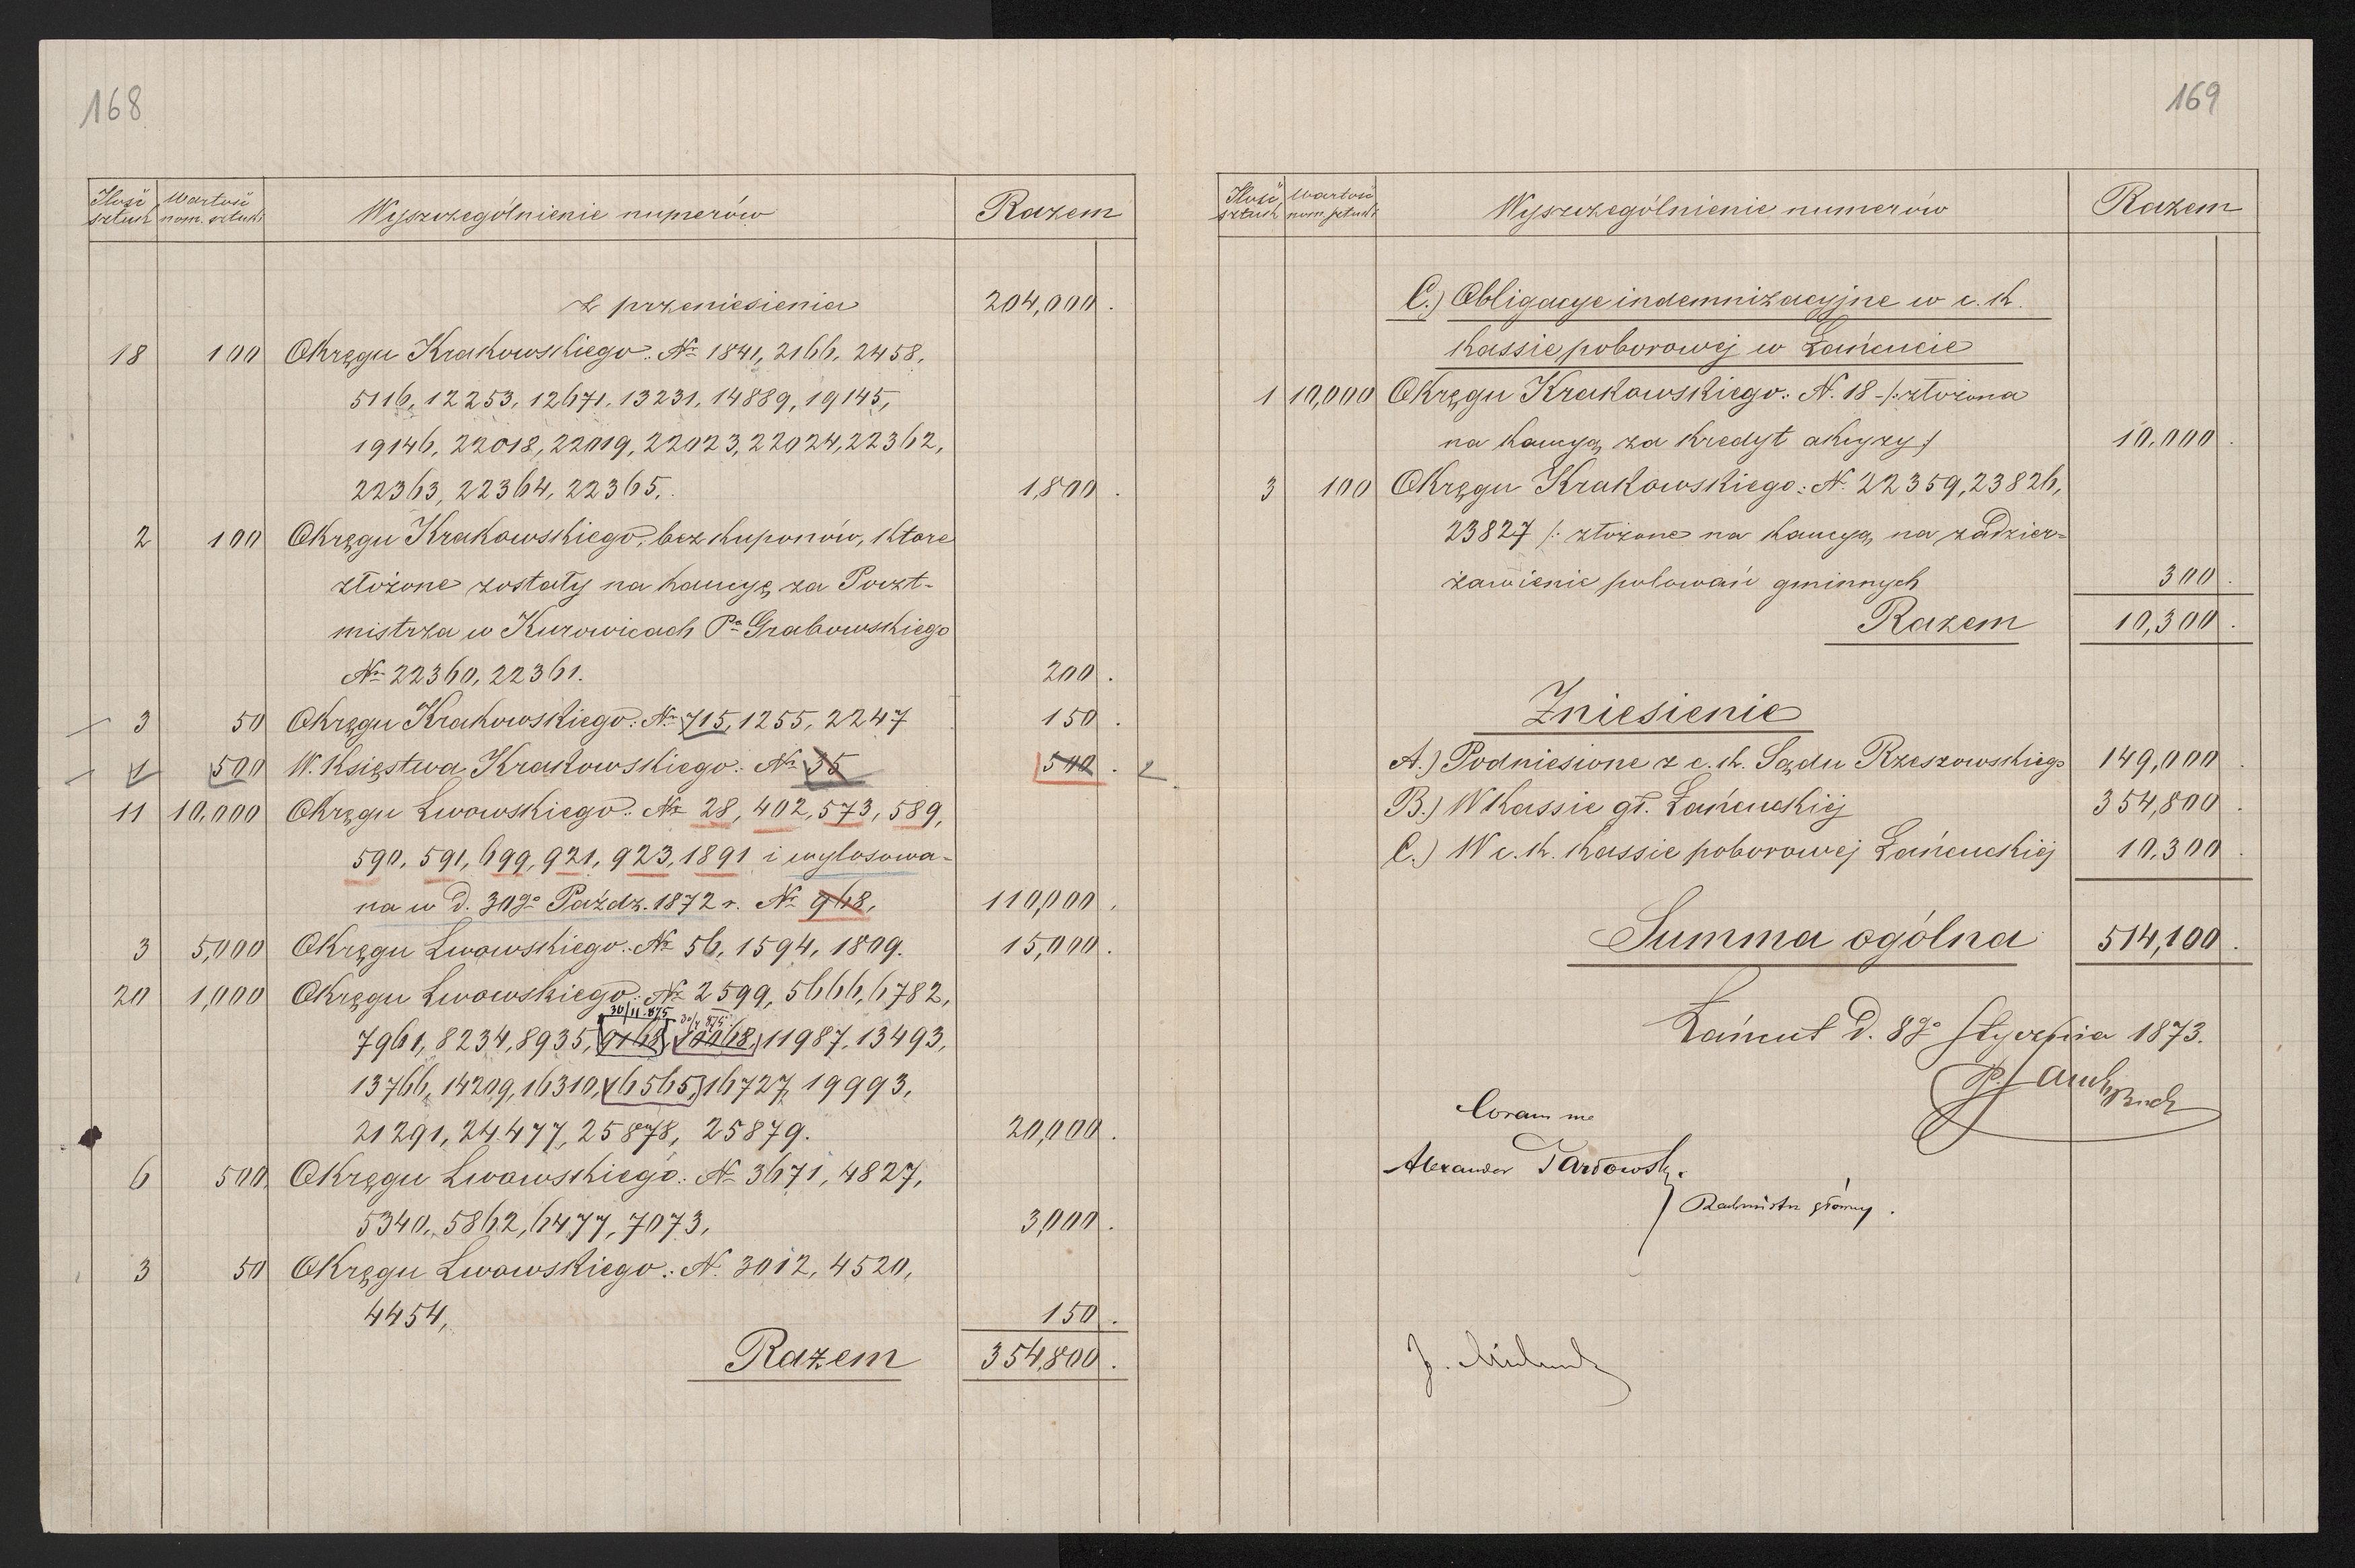 168
Ilość sztuk | Wartość nom. sztuki | Wyszczególnienie numerów | Razem
z przeniesienia 204,000.
18 100 Okręgu Krakowskiego: Nr 1841, 2166, 2458,
5116, 12253, 12671, 13231, 14889, 19145,
19146, 22018, 22019, 22023, 22024, 22362,
22363, 22364, 22365. 1,800.
2 100 Okręgu Krakowskiego, bez kuponów, które
złożone zostały na kaucyę za Poczt-
mistrza w Kurowicach Pa Grabowskiego
Nr 22360, 22361. 200.
3 50 Okręgu Krakowskiego: Nr 715, 1255, 2247 150.
1 500 W. Księstwa Krakowskiego: Nr 35 500.
11 10,000 Okręgu Lwowskiego: Nr 28, 402, 573, 589,
590, 591, 699, 921, 923, 1891 i wylosowa-
na w d. 30go Paźdz. 1872 r. Nr 968, 110,000.
3 5,000 Okręgu Lwowskiego: Nr 56, 1594, 1809. 15,000.
20 1,000 Okręgu Lwowskiego: Nr 2599, 5666, 6782,
30/11 875
7961, 8234, 8935, 9168, 10068, 11987, 13493,
13766, 14209, 16310, 16565, 16727, 19993,
21291, 24477, 25878, 25879. 20,000.
6 500 Okręgu Lwowskiego: Nr 3671, 4827,
5340, 5862, 6477, 7073, 3,000.
3 50 Okręgu Lwowskiego: N. 3012, 4520,
4454, 150.
Razem 354,800.
169
Ilość sztuk | Wartość nom. sztuki | Wyszczególnienie numerów | Razem
C.) Obligacye indemnizacyjne w c. k.
kassie poborowej w Łańcucie
1 10,000 Okręgu Krakowskiego: N. 18 - /: złożona
na kaucyą za kredyt akcyzy / 10,000.
3 100 Okręgu Krakowskiego: N. 22359, 23826,
23827 /: złożone na kaucyą na zadzier-
żawienie polowań gminnych 300.
Razem 10,300.
Zniesienie
A.) Podniesione z c. k. Sądu Rzeszowskiego 149,000.
B.) W Kassie gł. Łańcuckiej 354,800.
C.) W c. k. kassie poborowej Łańcuckiej 10,300.
Summa ogólna 514,100.
Łańcut d. 8go Stycznia 1873.
Coram me
Alexander